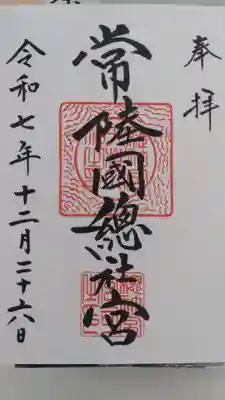 奉拝
常陸國總社宮
令和七年十二月二十六日